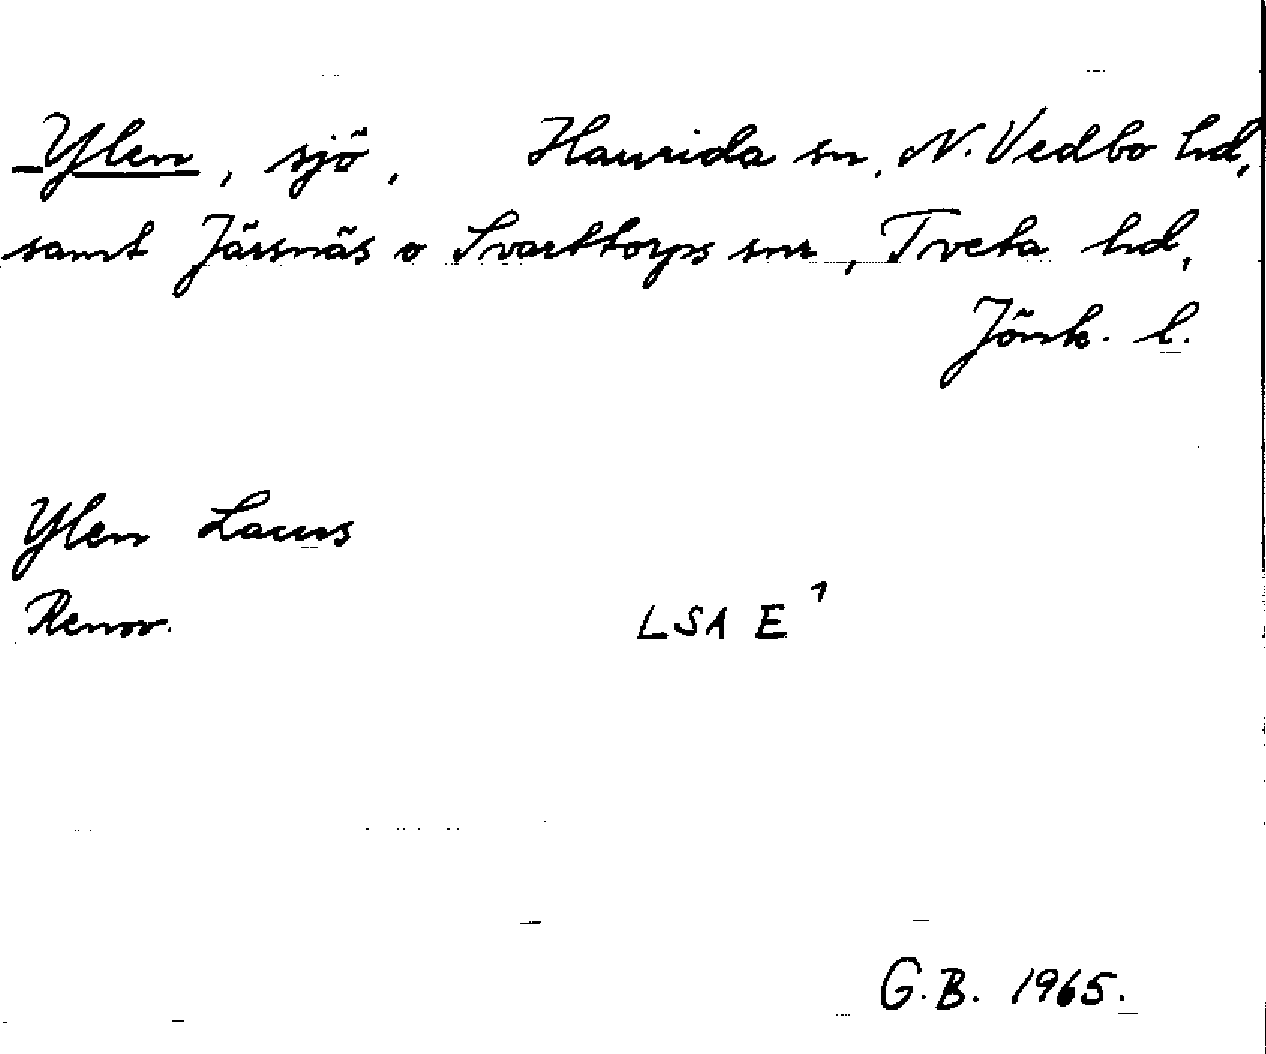 Ylen, sjö, Haurida sn, N. Vedbo hd,
samt Järsnäs o Svarttorps snr, Tveta hd,
Jönk. l.
Ylen Lacus
Renov. LSA E 1
G.B. 1965.